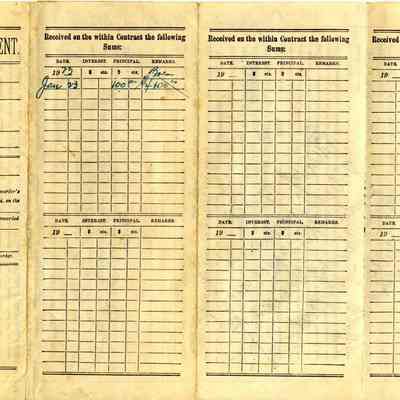 ENT.
Received on the within Contract the following
Sums:
DATE. INTEREST. PRINCIPAL. REMARKS.
19 $ cts. $ cts.
Jan 23 100
DATE. INTEREST. PRINCIPAL. REMARKS.
19 $ cts. $ cts.
Received on the within Contract the following
Sums:
DATE. INTEREST. PRINCIPAL. REMARKS.
19 $ cts. $ cts.
DATE. INTEREST. PRINCIPAL. REMARKS.
19 $ cts. $ cts.
Received on
DATE.
19
DATE.
19